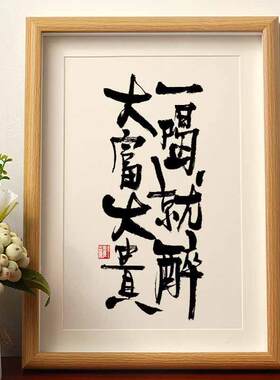 一喝就醉
大富大貴